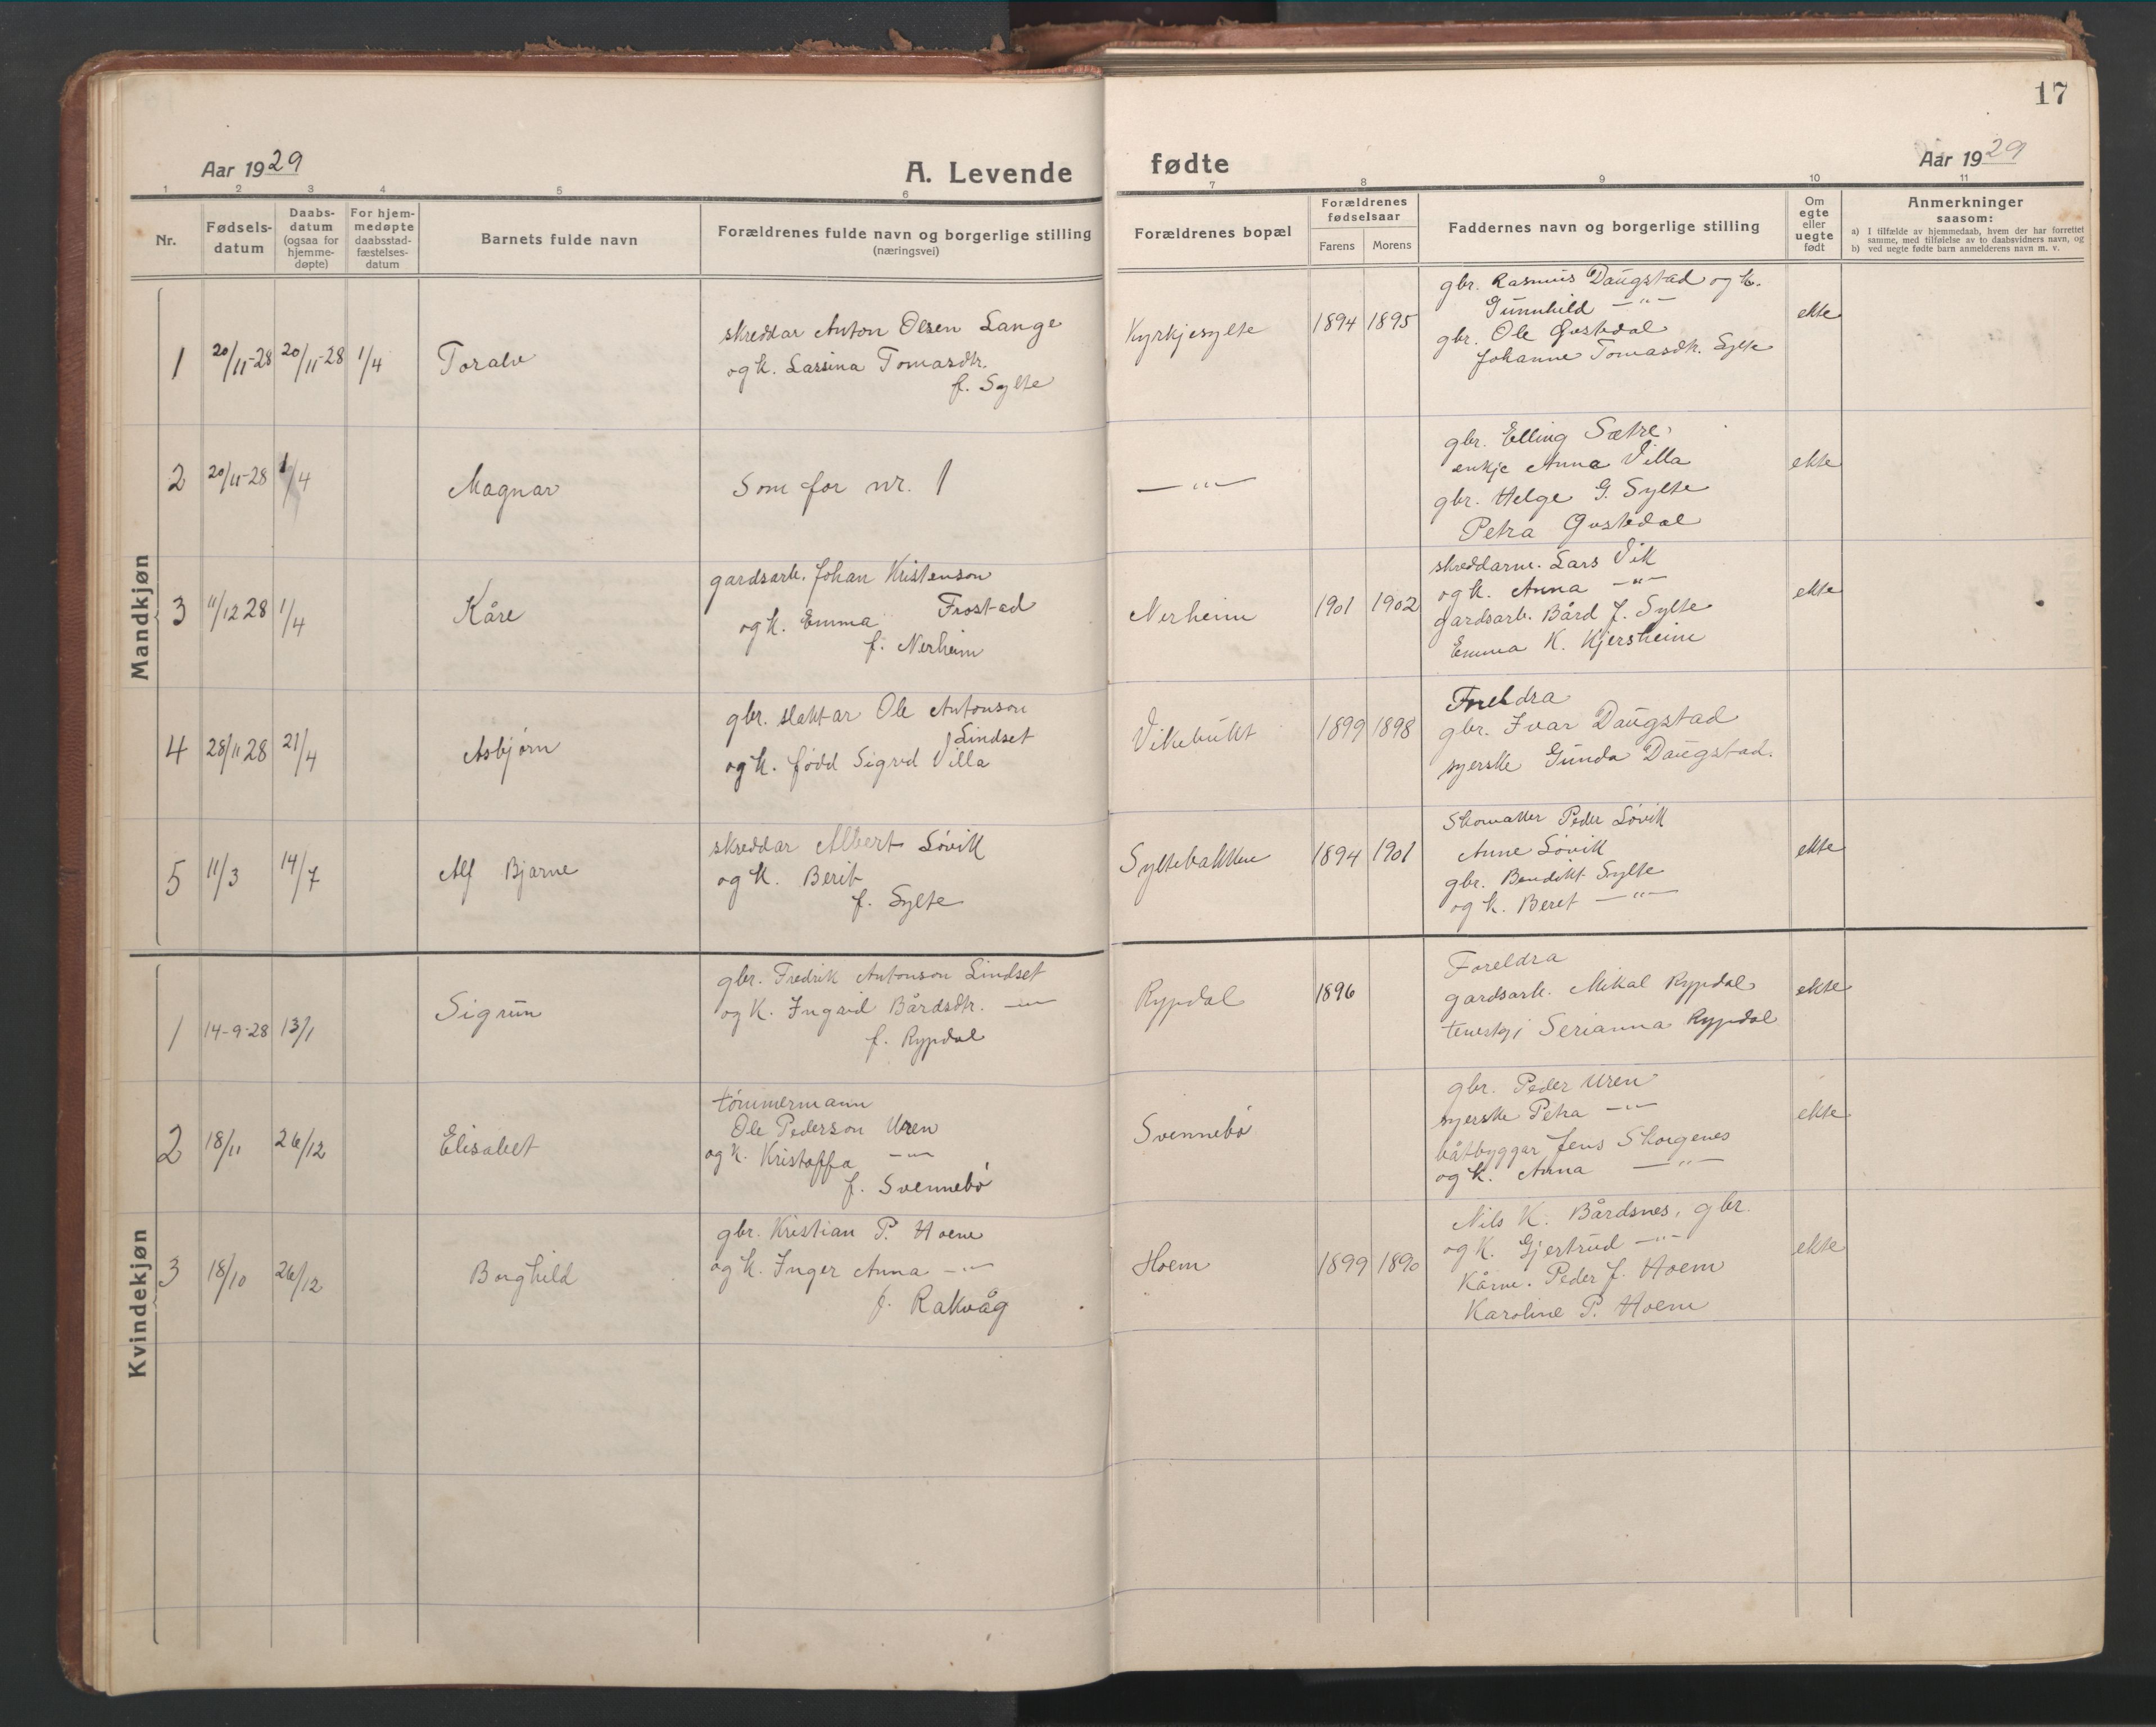 17
Aar 1929
A. Levende fødte
Aar 1929
1 2 3 4 5 6 7 8 9 10 11
Nr.
Fødsels-
datum
Daabs-
datum
(ogsaa for
hjemme-
døpte)
For hjem-
medøpte
daabsstad-
fæstelses-
datum
Barnets fulde navn
Forældrenes fulde navn og borgerlige stilling
(næringsvei)
Forældrenes bopæl
Forældrenes
fødselsaar
Farens Morens
Faddernes navn og borgerlige stilling
Om
egte
eller
uegte
født
Anmerkninger
saasom:
a) I tilfælde av hjemmedaab, hvem der har forrettet
samme, med tilføielse av to daabsvidners navn, og
b) ved uegte fødte barn anmelderens navn m. v.
Mandkjøn
1 20/11-28 20/11-28 1/4 Toralv
skreddar Anton Olsen Lange
og k. Lassina Tomasdtr.
f. Sylte
Kyrkjesylte 1894 1895
gbr. Rasmus Daugstad og k.
Gunnhild —"—
gbr. Ole Gustedal
Johanne Tomasdtr. Sylte
ekte
2 20/11-28 1/4 Magnar
Som for nr. 1
—"—
gbr. Elling Sætre
enkje Anna Villa
gbr. Helge G. Sylte
Petra Gustedal
ekte
3 11/12 28 1/4 Kåre
gardsarb. Johan Kristenson
Frostad
og k. Emma
f. Nerheim
Nerheim 1901 1902
skreddarm. Lars Vik
og k. Anna —"—
gardsarb. Bård J. Sylte
Emma K. Kjersheim
ekte
4 28/11 28 21/4 Asbjørn
gbr. slaktar Ole Antonson
Lindset
og k. fødd Sigrid Villa
Vikebukt 1899 1898
Foreldra
gbr. Ivar Daugstad
syerske Gunda Daugstad.
5 11/3 14/7 Alf Bjarne
skreddar Albert Løvik
og k. Berit
f. Sylte
Syltebakken 1894 1901
Skomaker Peder Løvik
Anne Løvik
gbr. Bendikt Sylte
og k. Beret —"—
ekte
Kvindekjøn
1 14-9-28 13/1 Sigrun
gbr. Fredrik Antonson Lindset
og k. Ingrid Bårdsdtr. —"—
f. Rypdal
Rypdal 1896
Foreldra
gardsarb. Mikal Rypdal
Serianna Rypdal
ekte
2 18/11 26/12 Elisabet
tømmermann
Ole Pederson Uren
og k. Kristoffa —"—
f. Svennebø
Svennebø
gbr. Peder Uren
syerske Petra —"—
båtbyggar Jens Skorgenes
og k. Anna —"—
ekte
3 18/10 26/12 Borghild
gbr. Kristian P. Hoem
og k. Inger Anna —"—
f. Rakvåg
Hoem 1899 1890
Nils K. Bårdsnes, gbr.
og k. Gjertrud —"—
Kårm. Peder J. Hoem
Karoline P. Hoem
ekte